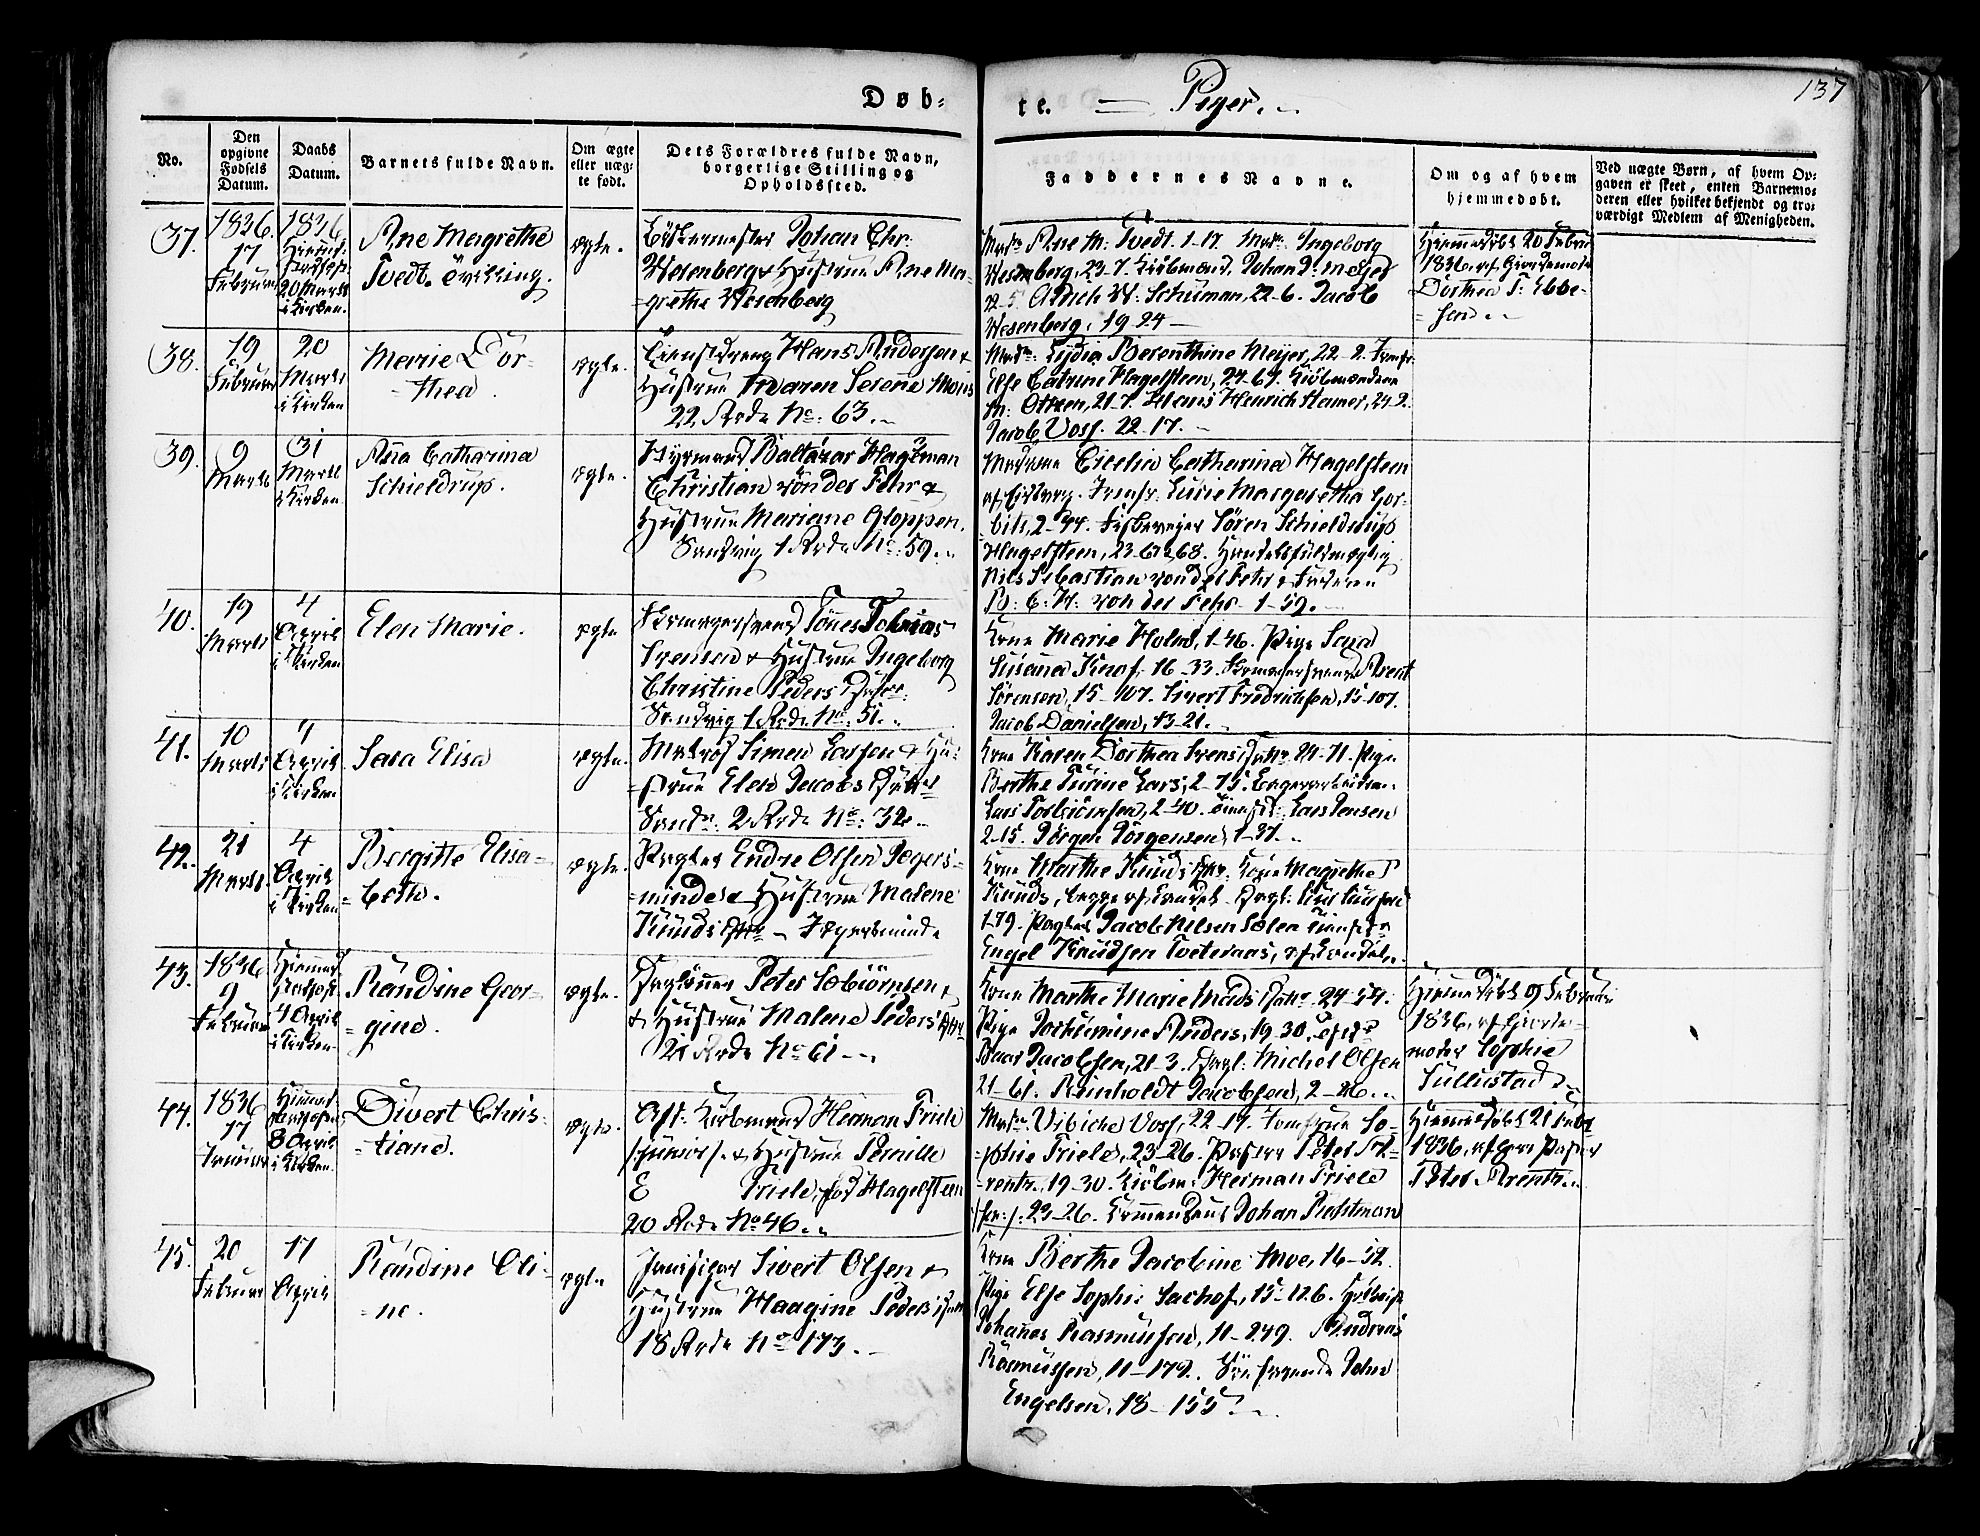 Døb-
te. — Piger.
137
No.
Den opgivne Fødsels Datum.
Daabs Datum.
Barnets fulde Navn.
Om ægte eller uæg-te født.
Dets Forældres fulde Navn, borgerlige Stilling og Opholdssted.
Faddernes Navne.
Om og af hvem hjemmedøbt.
Ved uægte Børn, af hvem Op-
gaven er skeet, enten Barnemo-
deren eller hvilket bekjendt og tro-
værdigt Medlem af Menigheden.
37. 1836. 17 Februar
1836 20 Marts i Kirken.
Ane Magrethe
Tvedt.
ægte.
Johan Chr:
Wesenberg & Hustrue Ane Ma-
grethe Wesenberg
Mad: Ane M: Tvedt. 1-17. Mad: Ingeborg
Wesenberg, 23-7. Kiøbmænd. Johan D: Meyer
Schuman, 22-6. Jacob
Wesenberg. 19-24
Hiemmedøbt 20 Februar
1836, af Giordemoder
Dorthea T: Ebbe-
sen.
38. 19 Februar
20 Marts i Kirken
Marie Dor-
thea.
ægte.
Tienstdreng Hans Andersen &
Hustrue Maren Serene Mons
22 Rode No. 63.
Mad: Lydia Berenthine Meijer, 22-2. Jomfr:
Else Catrine Hagelsteen, 24-67. Kiøbmændene
M: Ottesen, 21-7. Hans Henrich Hamer, 24-2.
Jacob Voss. 22-17.
39. 9 Marts
31 Marts i Kirken.
Ana Catharina
Schieldrup.
ægte.
Styrmand Baltazar Hagtman
Christian von der Fehr &
Hustrue Mariane Gloppen.
Sandvig 1 Rode No. 59.
Madame Cicelia Catharina Hagelsteen
Jomfr. Lucie Margaretha Gor-
bitz, 2-44. Søren Schieldrup
Hagelsteen, 23-67 & 68. Handelsfuldmægtig
Nils Sebastian von der Fehr & Faderen
B: C: H: von der Fehr. 1-59.
40. 19 Marts
4 April i Kirken
Elen Marie.
ægte
Skomagersvend Tønes Tobias
Svensen & Hustrue Ingeborg
Christine Peders Datter.
Sandvig 1 Rode No. 51.
Kone Marie Holm, 1-46. Pige Sara
Susana Knof, 16-33. Skomagersvend Arent
Sørensen, 15-107. Sivert Fredrichsen, 15-107.
Jacob Danielsen, 13-21.
41. 10 Marts
4 April i Kirken
Sara Elisa
ægte.
Matros Simen Larsen & Hu-
strue Elen Jacobs Datter
Sandv: 2 Rode No. 32.
Kone Karen Dorthea Svens Datter 24-71. Pige
Berthe Turine Lars, 2-75.
Lars Torbiørnsen, 2-40. Lars Jensen
2-15. Jørgen Jørgensen, 1-37.
42. 21 Marts.
4 April i Kirken
Bergitte Elisa-
beth.
ægte.
Pagter Endre Olsen Jægers-
minde & Hustrue Malene
Knuds Dtr — Jægersminde
Kone Marthe Knuds Dtr. Magrethe
Knuds, begge af Landet.
1-79. Pagter Jacob Nilsen Sælen
Engel Knudsen Tveteraas,
43. 1836 9 Februar
4 April i Kirken
Randine Geor-
gine.
ægte.
Dagløner Peter Sæbiørnsen
& Hustrue Malene Peders Dtr
21 Rode No. 61
Kone Marthe Marie Mads Datr. 24-54.
Pige Jochumine Anders, 19-30.
Jacobsen, 21-3. Dagl: Michel Olsen
21-61. Reinholdt Jacobsen, 2-26.
Hiemmedøbt 9 Februar
1836, af Giorde-
moder Sophie
Tullustad
44. 1836 17 Januar
8 April i Kirken.
Divert Chris-
tiane.
ægte.
Afd: Kiøbmand Herman Friele
/:junior:/ & Hustrue Pernille
E Friele, fød Hagelsteen
20 Rode No. 46.
Mad: Vibiche Voss, 22-17. Jomfrue So-
phie Friele, 23-26. Pastor Peter A-
rentz, 19-30. Kiøbm: Herman Friele
/:sen:/: 23-26. Johan Rahtman
Hiemmedøbt 21
1836, af Herr Pastor
Peter Arentz.
45. 20 Februar
17 April
Randine Oli-
ne.
ægte
Sivert Olsen &
Hustrue Haagine Peders Datter
18 Rode No. 173.
Kone Berthe Jacobine Moe, 16-52.
Pige Else Sophie Sachof, 15-126.
Johanes Rasmussen, 11-249. Andreas
Rasmussen, 11-179. Søefarende Johan
Engelsen, 18-155.